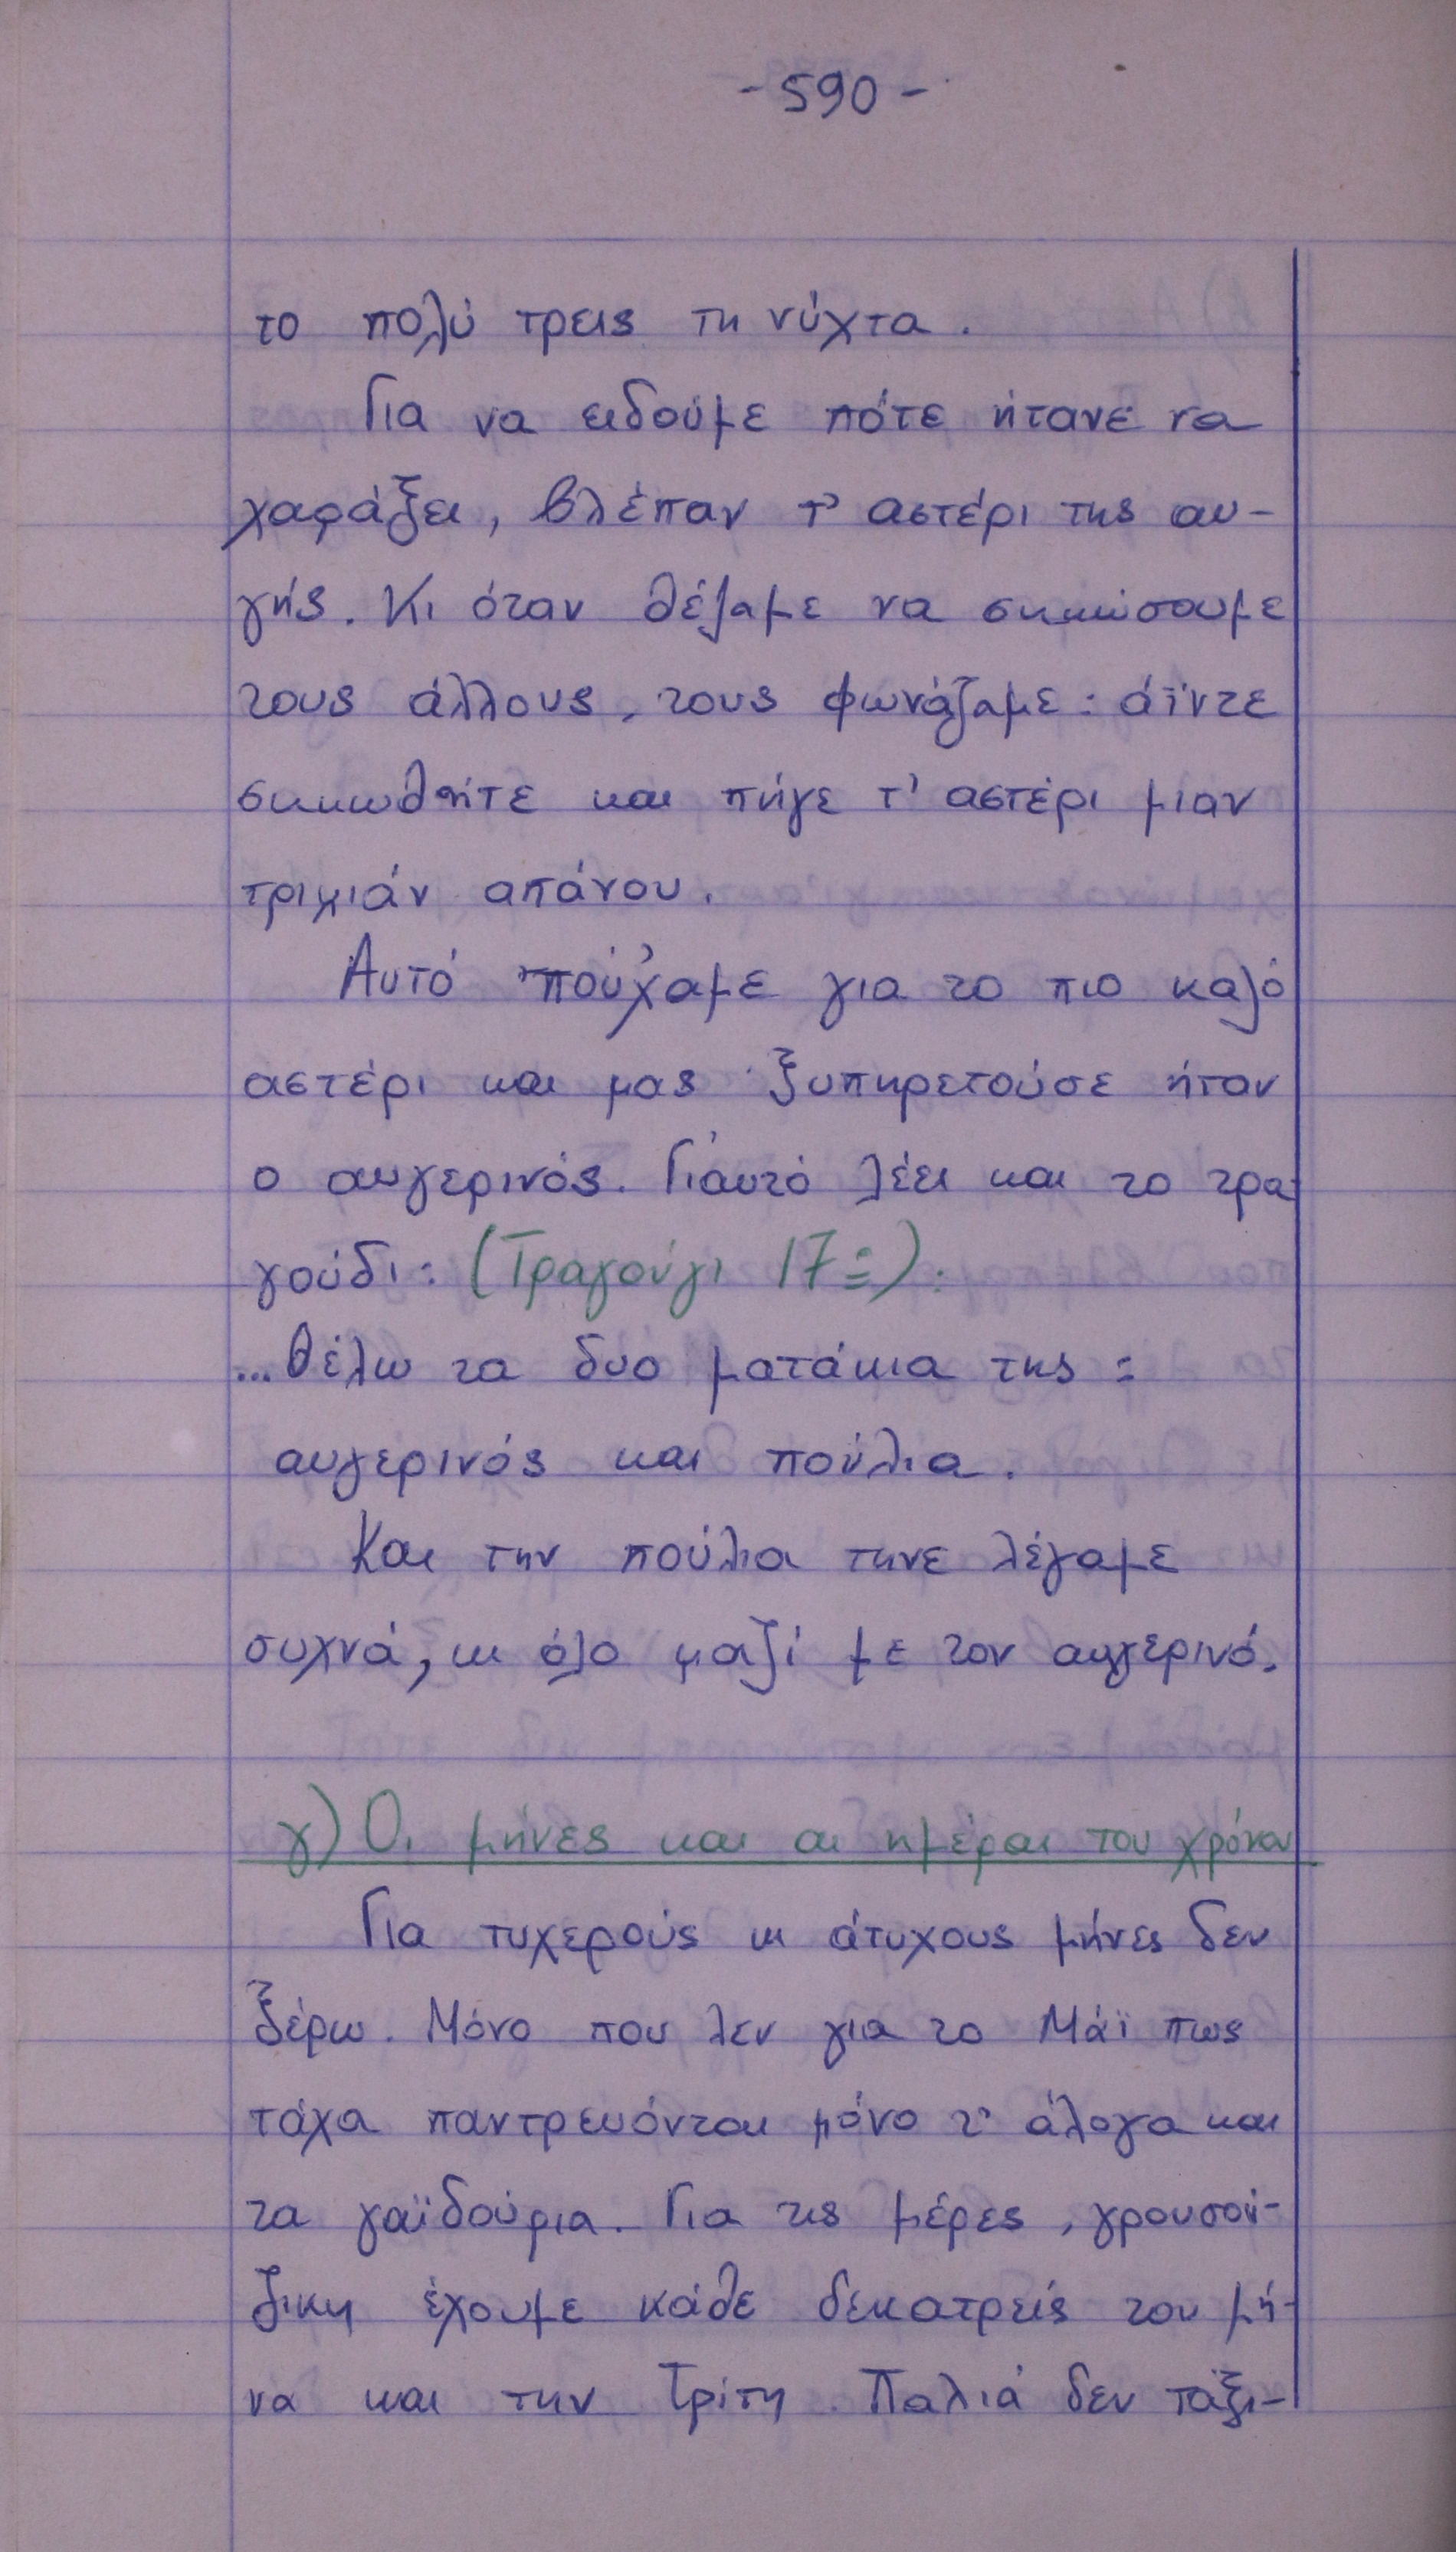 - 590 -
το πολύ τρεις τη νύχτα.
Για να ειδούμε πότε ήτανε να
χαράξει, βλέπαν τ' αστέρι της αυ-
γής. Κι όταν θέλαμε να σηκώσουμε
τους άλλους, τους φωνάζαμε: άϊντε
σηκωθήτε και πήγε τ' αστέρι μιαν
τριχιάν απάνου.
Αυτό πούχαμε για το πιο καλό
αστέρι και μας ξυπηρετούσε ήταν
ο αυγερινός. Γι'αυτό λέει και το τρα-
γούδι: (Τραγούγι 17=):
...θέλω τα δυο ματάκια της =
αυγερινός και πούλια.
Και την πούλια τηνε λέγαμε
συχνά, κι όλο μαζί με τον αυγερινό.
γ) Οι μήνες και αι ημέραι του χρόνου
Για τυχερούς κι άτυχους μήνες δεν
ξέρω. Μόνο που λεν για το Μάϊ πως
τάχα παντρευόνται μόνο τ' άλογα και
τα γαϊδούρια. Για τις μέρες, γρουσού-
ζικη έχουμε κάθε δεκατρείς του μή-
να και την Τρίτη. Παλιά δεν ταξι-